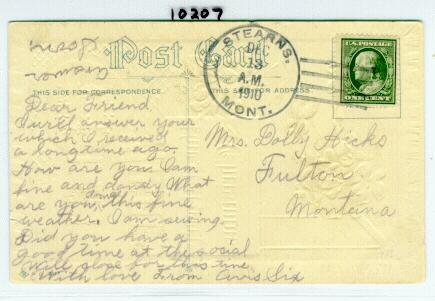 10207
Post Card
THIS SIDE FOR CORRESPONDENCE
THIS SIDE FOR ADDRESS
STEARNS,
DEC
13
A.M.
1910
MONT.
U.S. POSTAGE
ONE CENT
Mrs. Dolly Hicks
Fulton
Montana
Dear Friend
I will answer your
which I received
a long time ago.
How are you. I am
fine and dandy What
are you doing this fine
weather. I am sewing.
Did you have a
good time at the social
Will close for this time
With love From Avis Six